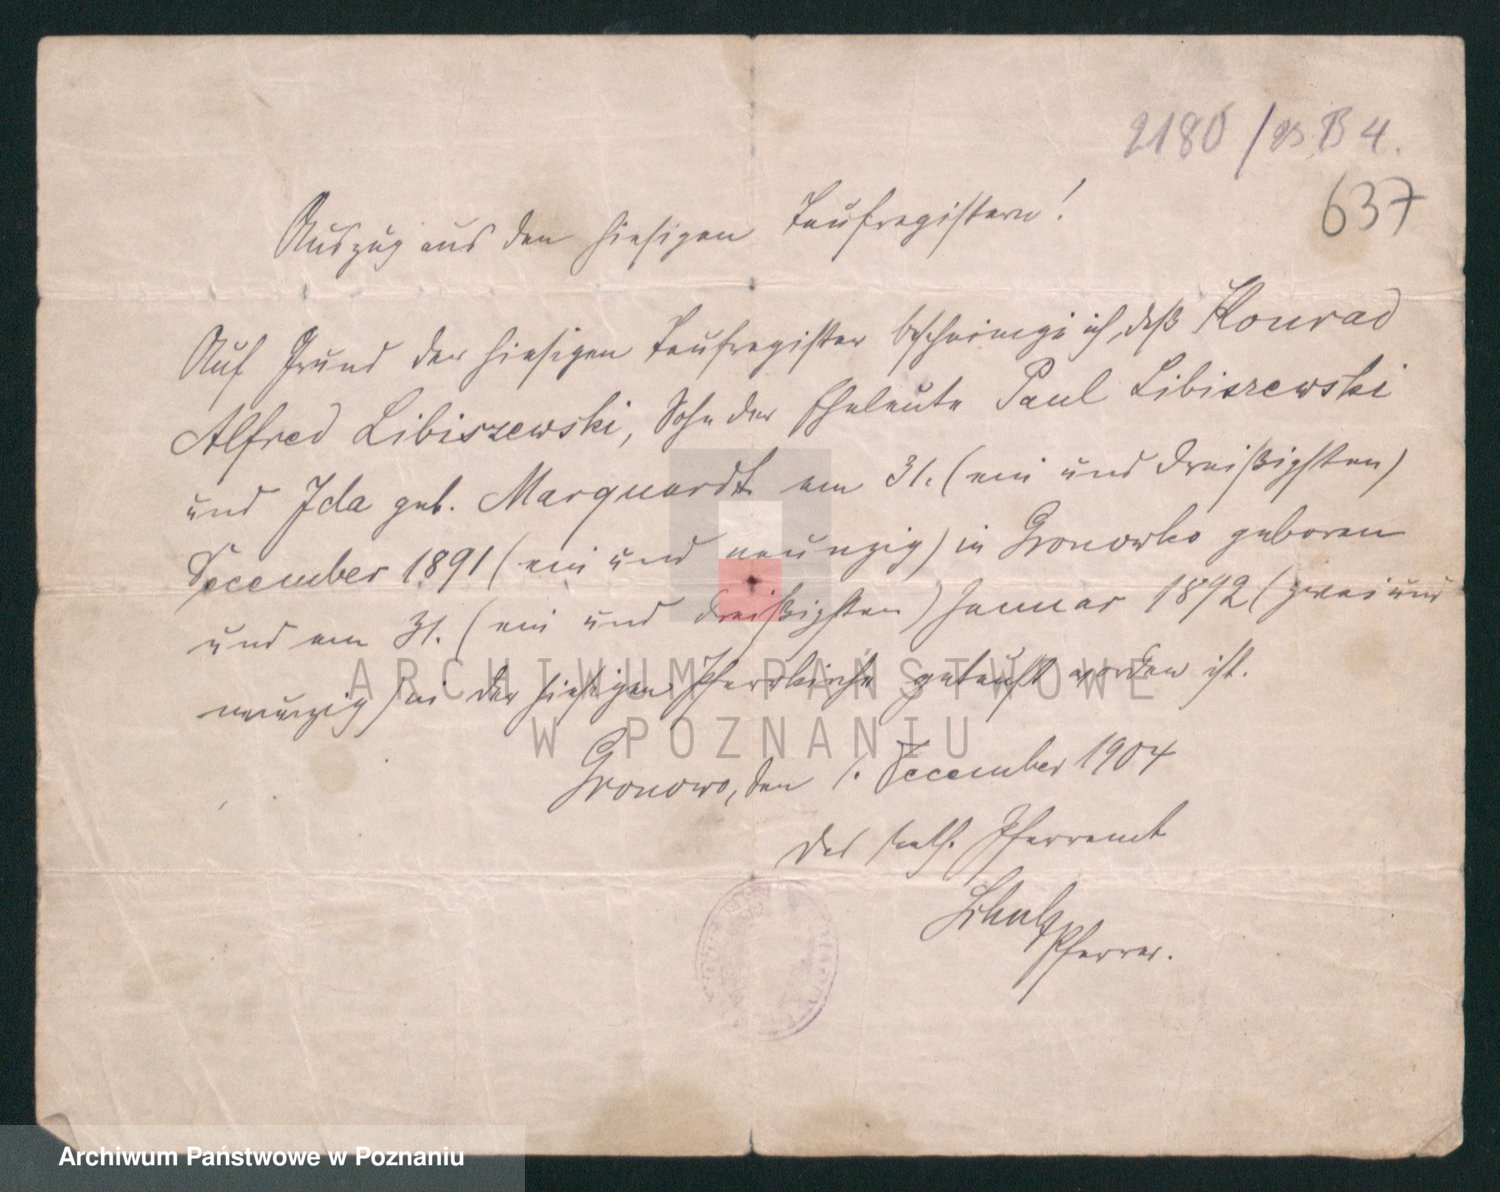 2180/93 B 4.
637
Auszug aus den hiesigen Taufregistern!
Auf Grund der hiesigen Taufregister bescheinige ich, daß Konrad
Alfred Libiszewski, Sohn der Eheleute Paul Libiszewski
und Ida geb. Marquardt am 31. (ein und dreißigsten)
December 1891 (ein und neunzig) in Gronowko geboren
und am 31. (ein und dreißigsten) Januar 1892 (zwei und
neunzig) in der hiesigen Pfarrkirche getauft worden ist.
Gronowo, den 1. December 1904
Das kath. Pfarramt
Schulz
Pfarrer.
ARCHIWUM PAŃSTWOWE
W POZNANIU
Archiwum Państwowe w Poznaniu